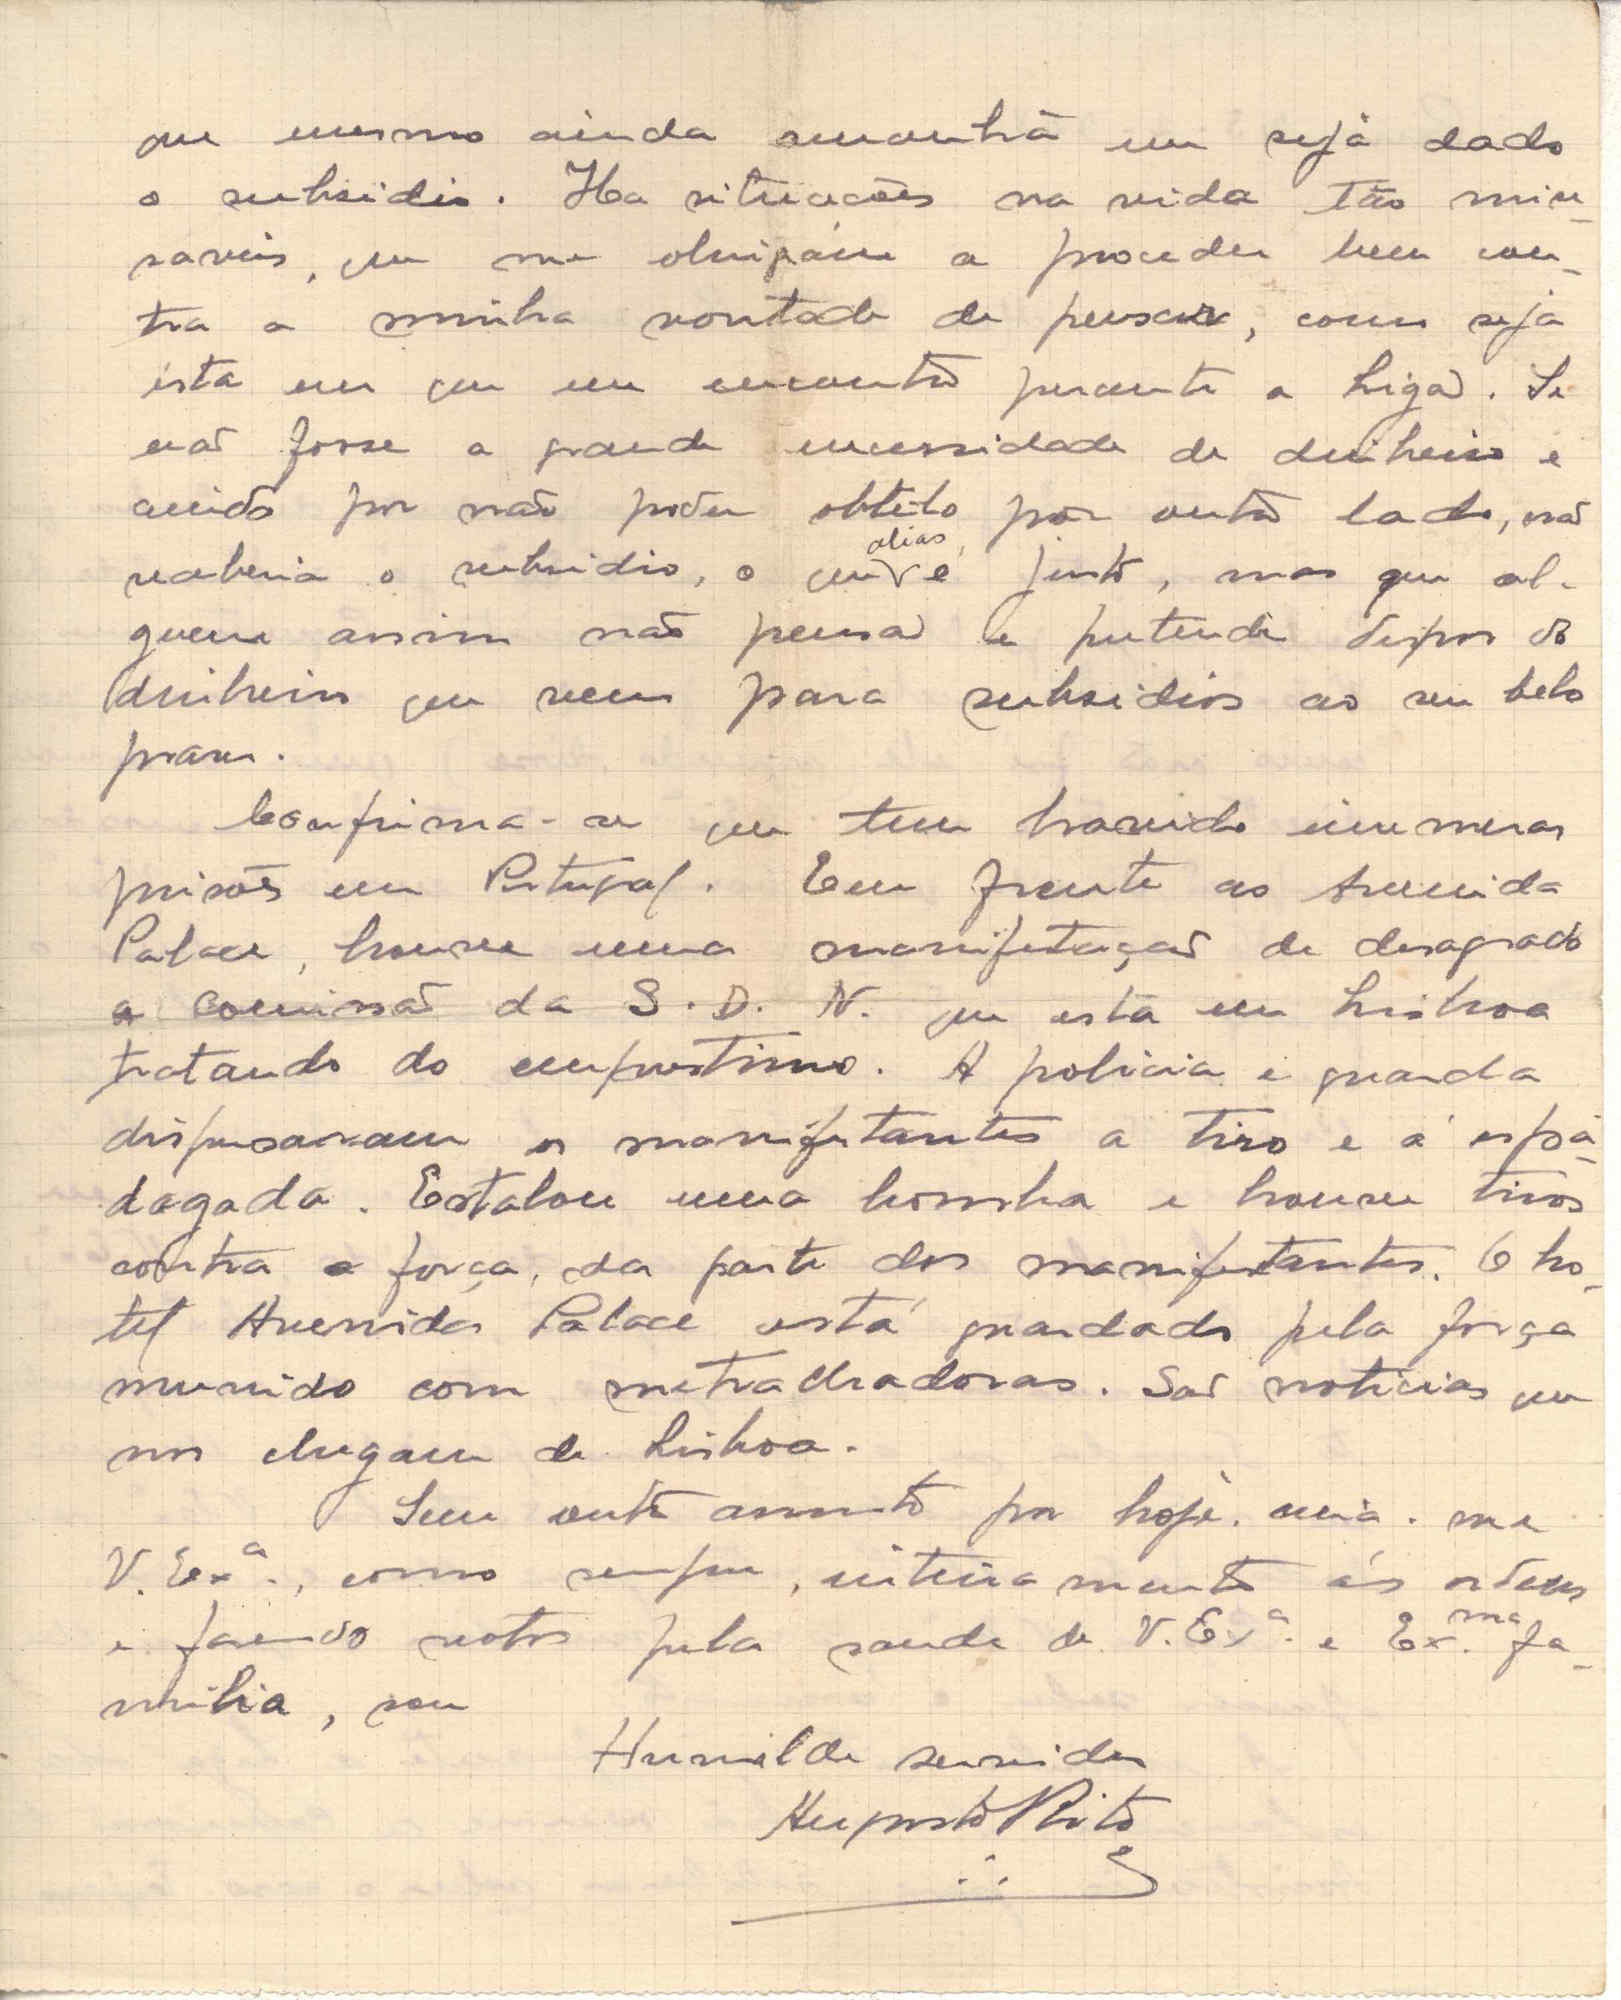 que mesmo ainda amanhã me sejà dado
o subsidio. Ha situacões na vida tão mise-
raveis, que me obrigáme a proceder bem con-
tra a minha vontade de pensar, como seja
ésta em que me encontro perante a Liga. Se
não fosse a grande necessidade de dinheiro e
ainda por não poder obtelo por outro lado, não
receberia o subsidio, o que alias, é justo, mas que al-
guem assim não pensa e pretende dispor do
dinheiro que vem para subsidios ao seu belo
prazer.
Confirma-se que tem havido inumeras
prisões em Portugal. Em frente ao Avenida
Palace, houve uma manifetação de desagrado
a Comissão da S. D. N. que está em Lisboa
tratando do emprestimo. A policia e guarda
dispersaram os manifestantes a tiro e á espa-
dagada. Estalou uma bomba e houve tiros
contra a força, da parte dos manifestantes. O ho-
tel Avenida Palace está guardado pela força
munido com metralhadoras. São noticias que
nos chegam de Lisboa.
Sem outro assunto por hoje, creia-me
V. Ex.ª, como sempre, inteiramente ás ordens
e fazendo votos pela saude de V. Ex.ª e Ex.ma fa-
milia, sou
Humilde servidor
Augusto Rito